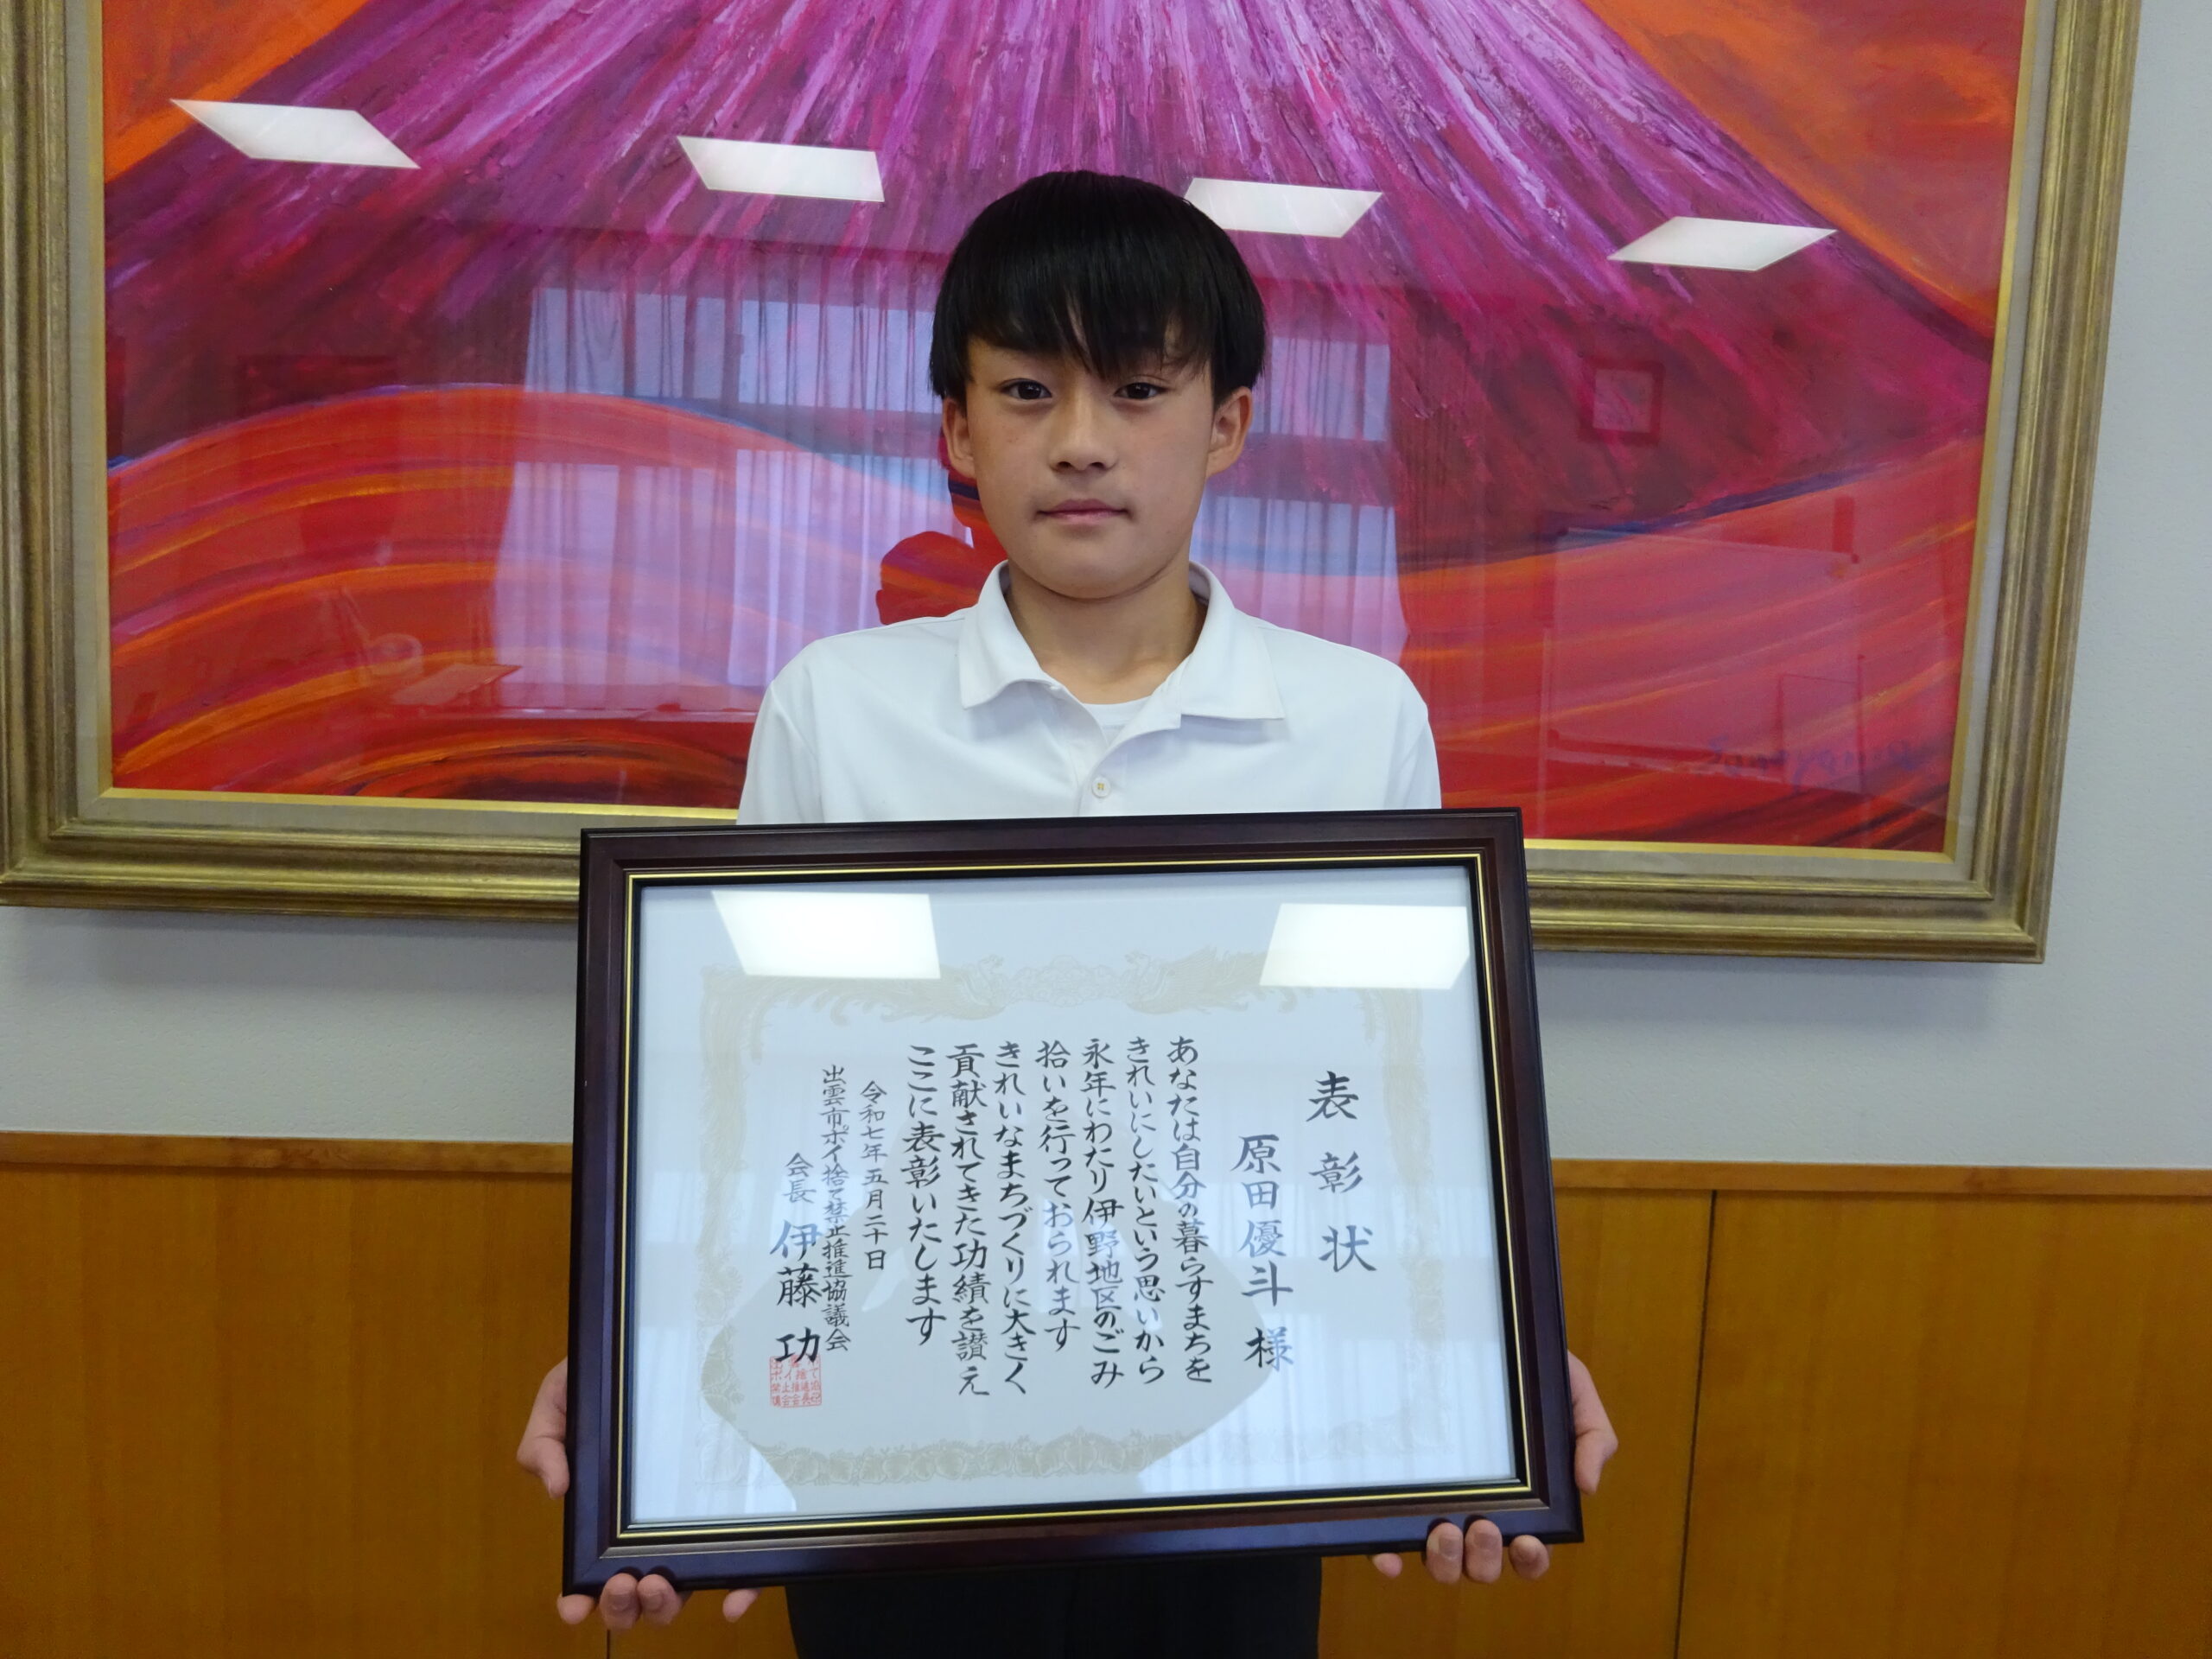 表彰状
原田優斗様
あなたは自分の暮らすまちを
きれいにしたいという思いから
永年にわたり伊野地区のごみ
拾いを行っておられます
きれいなまちづくりに大きく
貢献されてきた功績を讃え
ここに表彰いたします
令和七年五月二十日
出雲市ポイ捨て禁止推進協議会
会長 伊藤 功